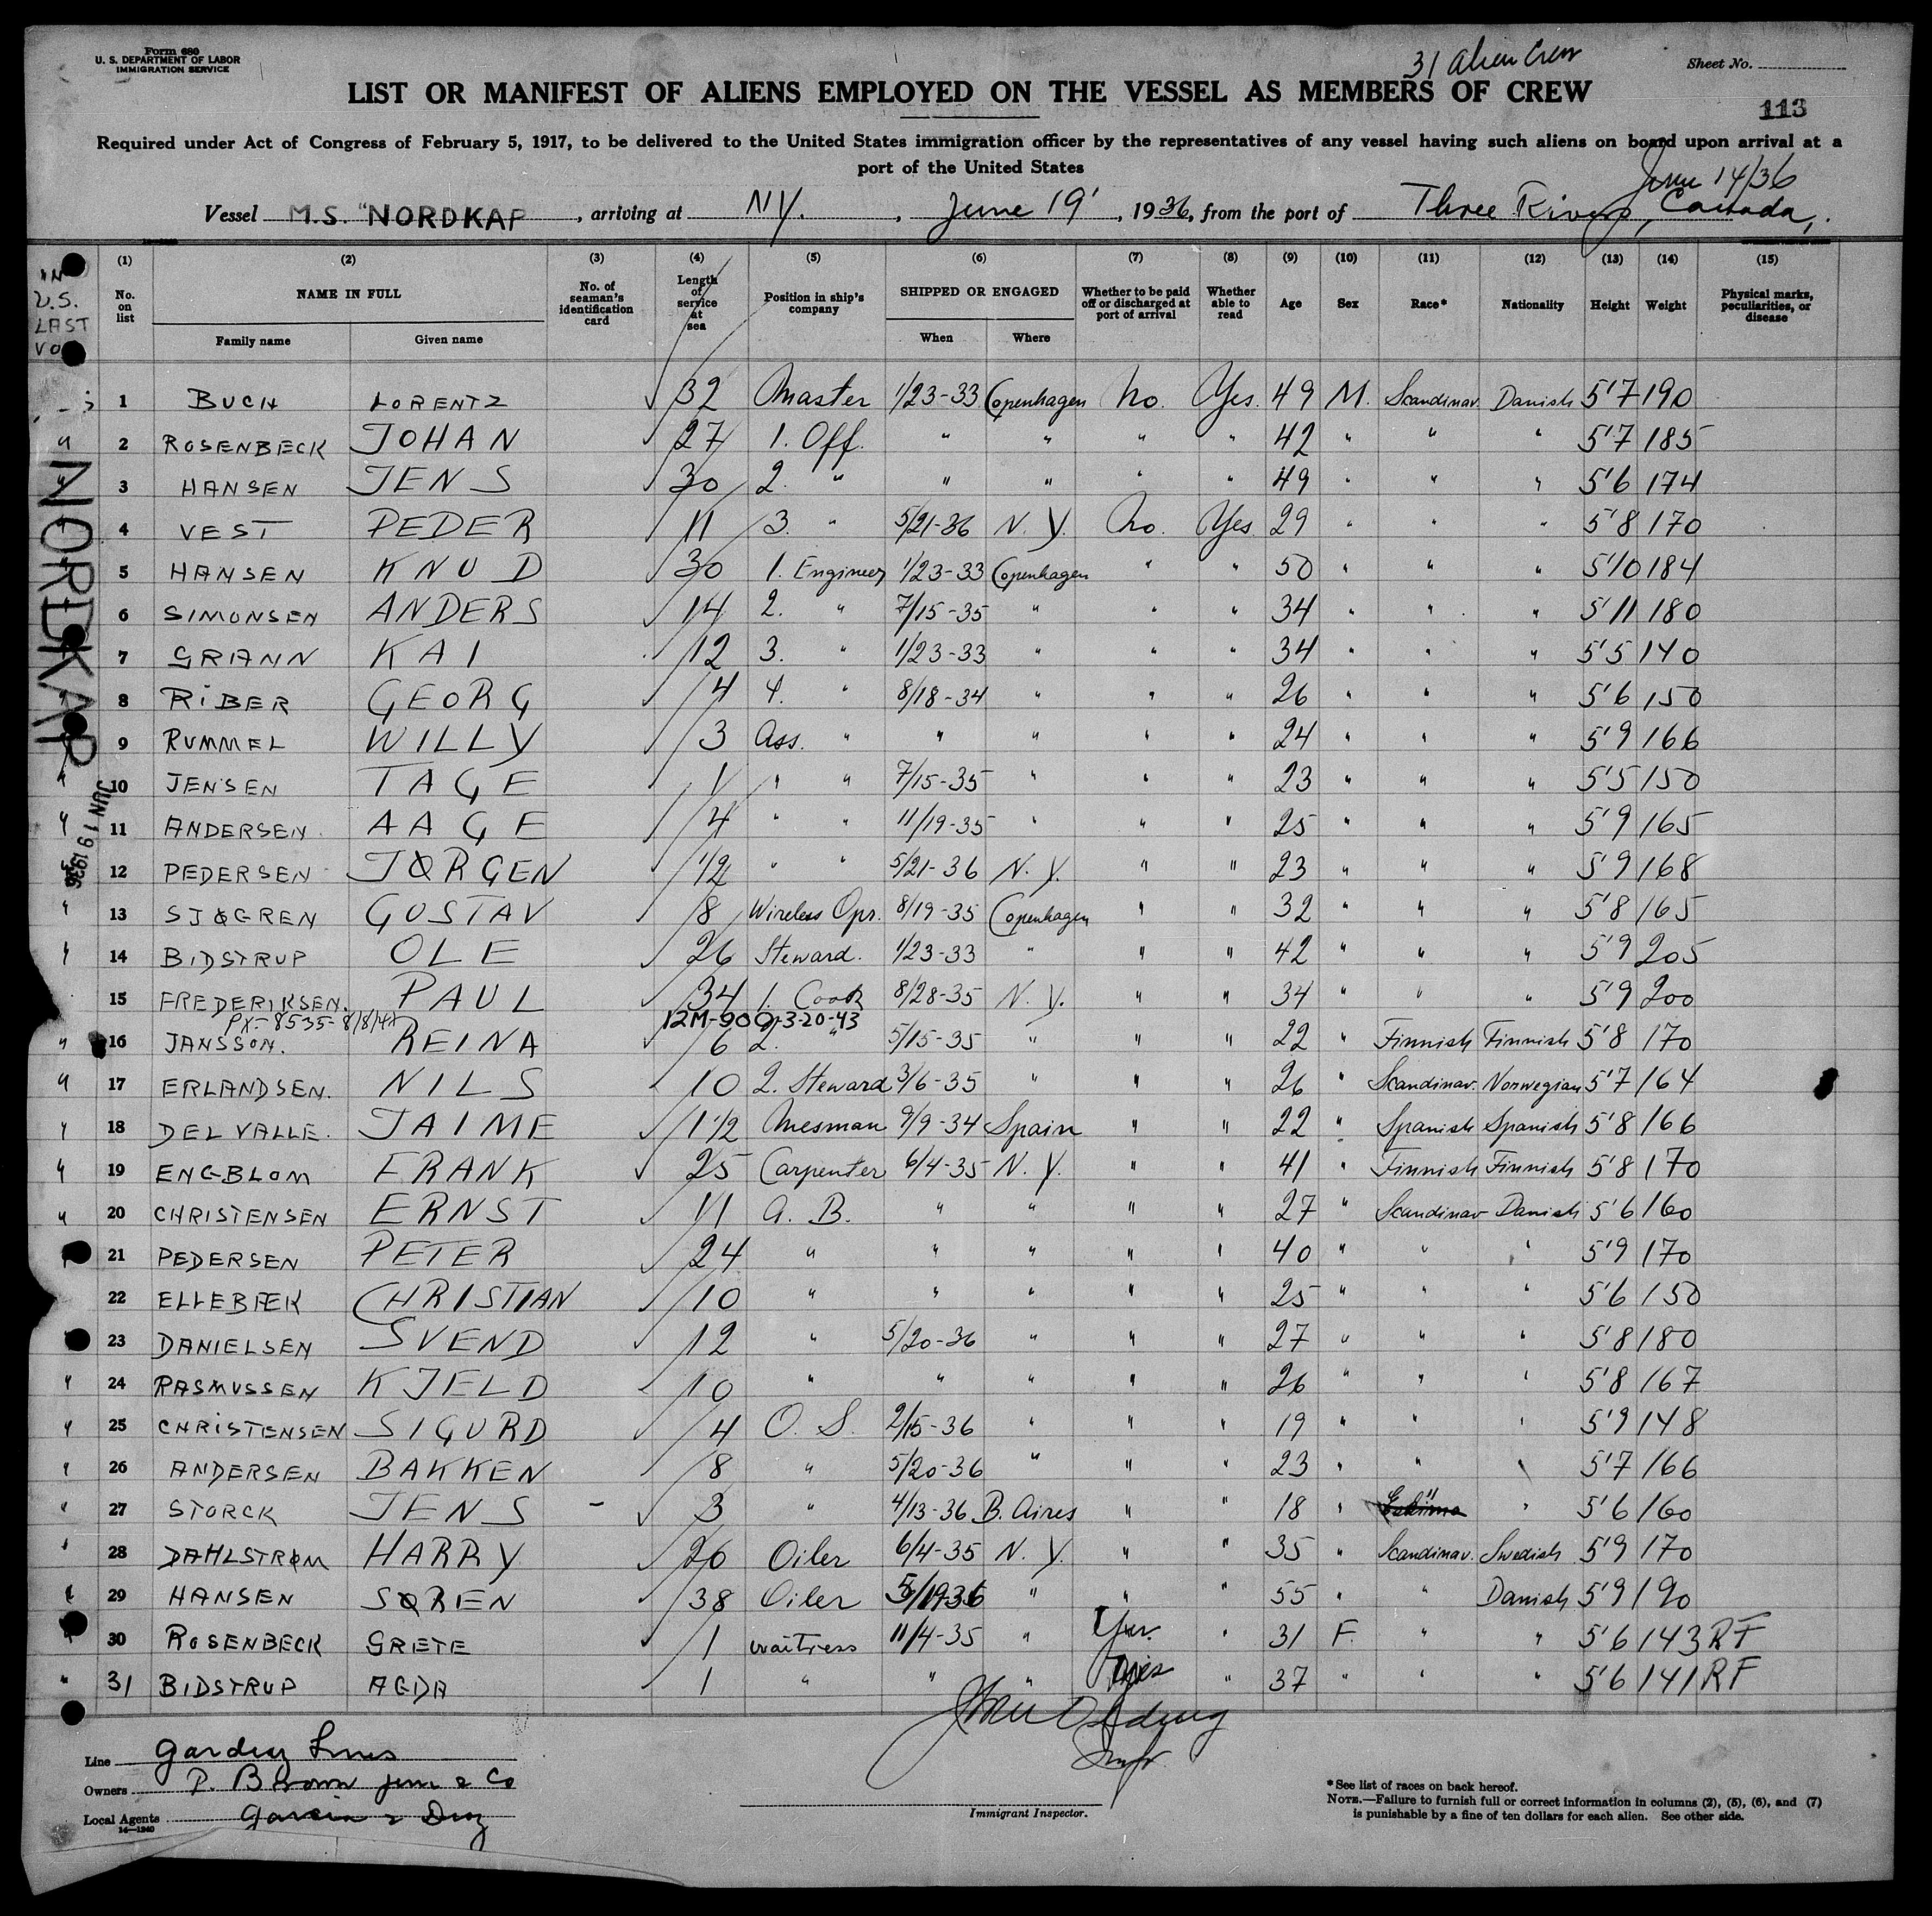 Form 680
U. S. DEPARTMENT OF LABOR
IMMIGRATION SERVICE
31 alien Crew
Sheet No.
LIST OR MANIFEST OF ALIENS EMPLOYED ON THE VESSEL AS MEMBERS OF CREW
113
Required under Act of Congress of February 5, 1917, to be delivered to the United States immigration officer by the representatives of any vessel having such aliens on board upon arrival at a
port of the United States
June 14/36
Vessel M.S. "NORDKAP, arriving at NY., June 19', 1936, from the port of Three Rivers, Canada,
IN U.S. LAST VO
(1) (2) (3) (4) (5) (6) (7) (8) (9) (10) (11) (12) (13) (14) (15)
No. on list
NAME IN FULL
Family name Given name
No. of seaman's identification card
Length of service at sea
Position in ship's company
SHIPPED OR ENGAGED
When Where
Whether to be paid off or discharged at port of arrival
Whether able to read
Age Sex Race* Nationality Height Weight
Physical marks, peculiarities, or disease
NORDKAP
JUN 19 1936
1 BUCH LORENTZ 32 Master 1/23-33 Copenhagen No. Yes. 49 M. Scandinav. Danish 5'7 190
2 ROSENBECK JOHAN 27 1. Off. " " " " 42 " " " 5'7 185
3 HANSEN JENS 30 2. " " " " " 49 " " " 5'6 174
4 VEST PEDER 11 3. " 5/21-36 N. Y. No. Yes 29 " " " 5'8 170
5 HANSEN KNUD 30 1. Engineer 1/23-33 Copenhagen " " 50 " " " 5'10 184
6 SIMONSEN ANDERS 14 2. " 7/15-35 " " " 34 " " " 5'11 180
7 GRANN KAI 12 3. " 1/23-33 " " " 34 " " " 5'5 140
8 RIBER GEORG 4 4. " 8/18-34 " " " 26 " " " 5'6 150
9 RUMMEL WILLY 3 Ass. " " " " " 24 " " " 5'9 166
10 JENSEN TAGE 1 " " 7/15-35 " " " 23 " " " 5'5 150
11 ANDERSEN AAGE 4 " " 11/19-35 " " " 25 " " " 5'9 165
12 PEDERSEN JØRGEN 1/2 " " 5/21-36 N. Y. " " 23 " " " 5'9 168
13 SJØGREN GUSTAV 8 Wireless Opr. 8/19-35 Copenhagen " " 32 " " " 5'8 165
14 BIDSTRUP OLE 26 Steward. 1/23-33 " " " 42 " " " 5'9 205
15 FREDERIKSEN. PAUL 34 1. Cook 8/28-35 N. Y. " " 34 " " " 5'9 200
12M-900-3-20-43
16 JANSSON. REINA 6 2. " 5/15-35 " " " 22 " Finnish Finnish 5'8 170
17 ERLANDSEN. NILS 10 2. Steward 3/6-35 " " " 26 " Scandinav. Norwegian 5'7 164
18 DEL VALLE. JAIME 1 1/2 Mesman 9/9-34 Spain " " 22 " Spanish Spanish 5'8 166
19 ENGBLOM FRANK 25 Carpenter 6/4-35 N. Y. " " 41 " Finnish Finnish 5'8 170
20 CHRISTENSEN ERNST 11 A. B. " " " " 27 " Scandinav Danish 5'6 160
21 PEDERSEN PETER 24 " " " " " 40 " " " 5'9 170
22 ELLEBÆK CHRISTIAN 10 " " " " " 25 " " " 5'6 150
23 DANIELSEN SVEND 12 " 5/20-36 " " " 27 " " " 5'8 180
24 RASMUSSEN KJELD 10 " " " " " 26 " " " 5'8 167
25 CHRISTENSEN SIGURD 4 O. S. 2/15-36 " " " 19 " " " 5'9 148
26 ANDERSEN BAKKEN 8 " 5/20-36 " " " 23 " " " 5'7 166
27 STORCK JENS - 3 " 4/13-36 B. Aires " " 18 " " " 5'6 160
28 DAHLSTRØM HARRY 20 Oiler 6/4-35 N. Y. " " 35 " Scandinav. Swedish 5'9 170
29 HANSEN SØREN 38 Oiler 5/19-36 " " " 55 " " Danish 5'9 190
30 ROSENBECK GRETE 1 waitress 11/4-35 " Yes. " 31 F. " " 5'6 143 RF
31 BIDSTRUP AGDA 1 " " " " 37 " " " 5'6 141 RF
Line Garcia Lines
Owners P. Brown Junr & Co
Local Agents Garcia & Diaz
14—1240
Immigrant Inspector.
*See list of races on back hereof.
NOTE.—Failure to furnish full or correct information in columns (2), (5), (6), and (7)
is punishable by a fine of ten dollars for each alien. See other side.